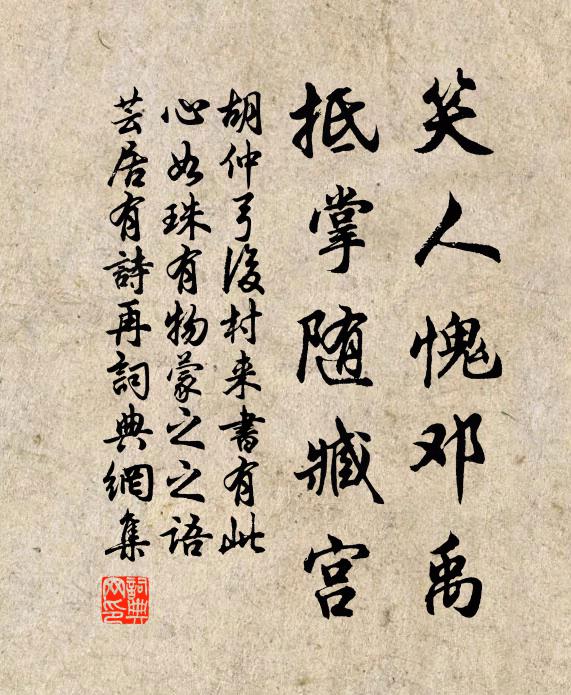 笑人愧邓禹
抵掌随臧宫
胡仲弓後村来書有此
心如珠有物蒙之之語
芸居有詩再詞典網集
詞典